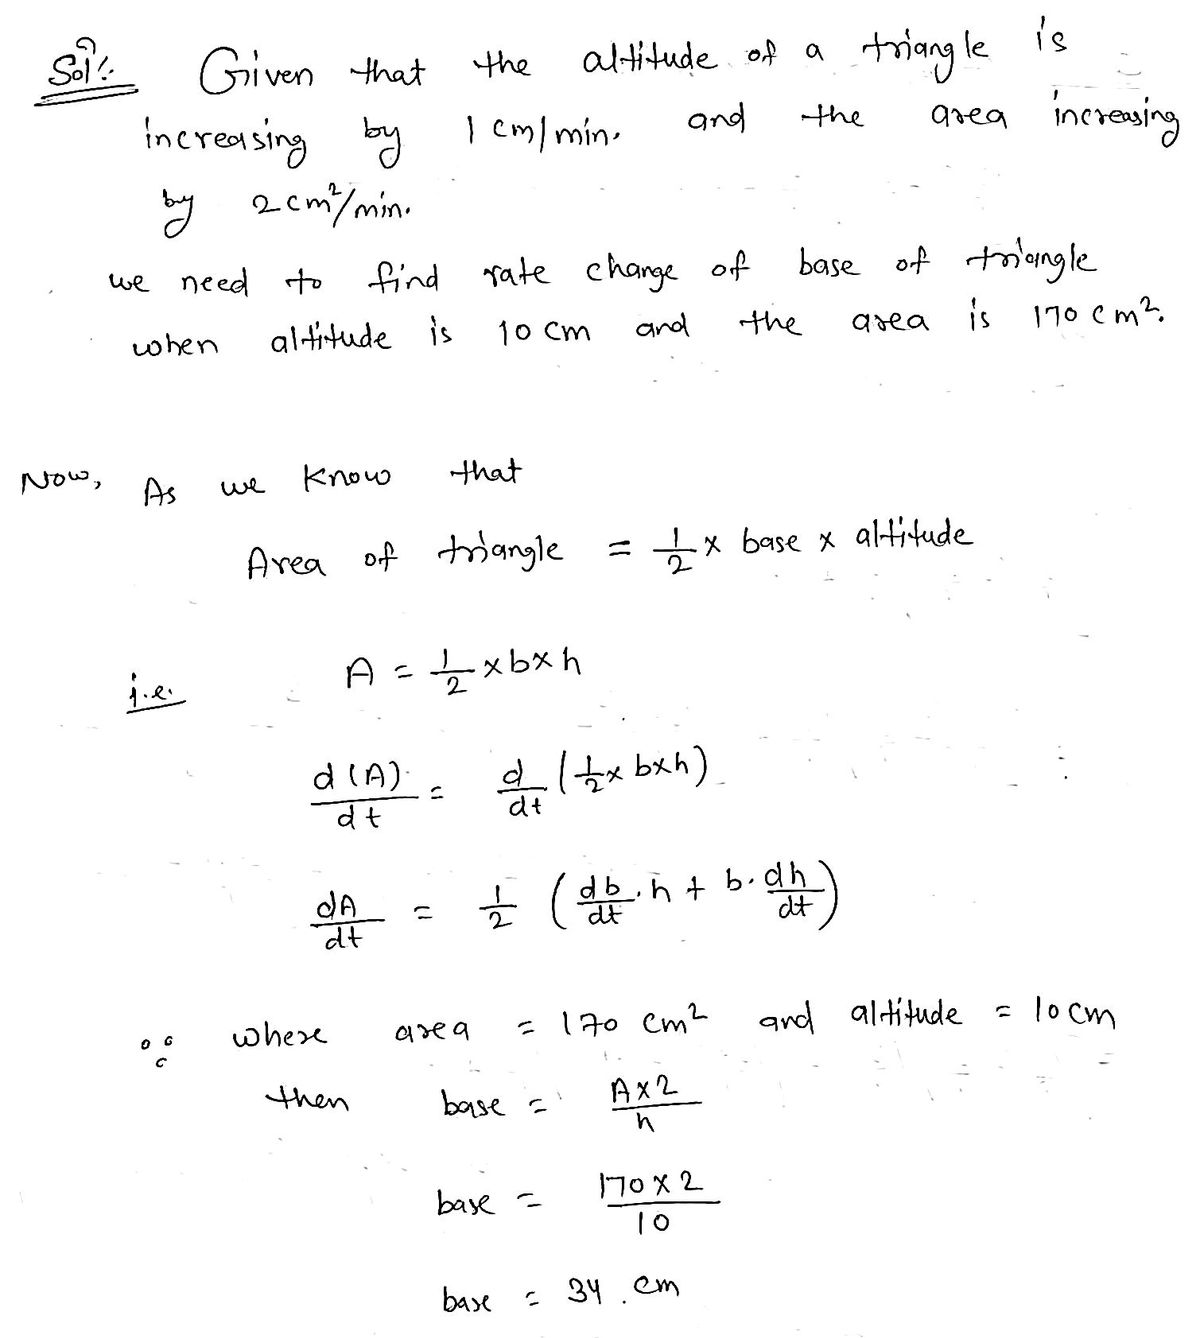 Solⁿ:
Given that the altitude of a triangle is
increasing by 1 cm/min. and the area increasing
by 2 cm²/min.
we need to find rate change of base of triangle
when altitude is 10 cm and the area is 170 cm².
Now, As we know that
Area of triangle = 1/2 × base × altitude
i.e. A = 1/2 × b × h
d(A)/dt = d/dt (1/2 × b×h)
dA/dt = 1/2 (db/dt · h + b · dh/dt)
∵ where area = 170 cm² and altitude = 10 cm
then base = A×2/h
base = 170×2/10
base = 34 cm